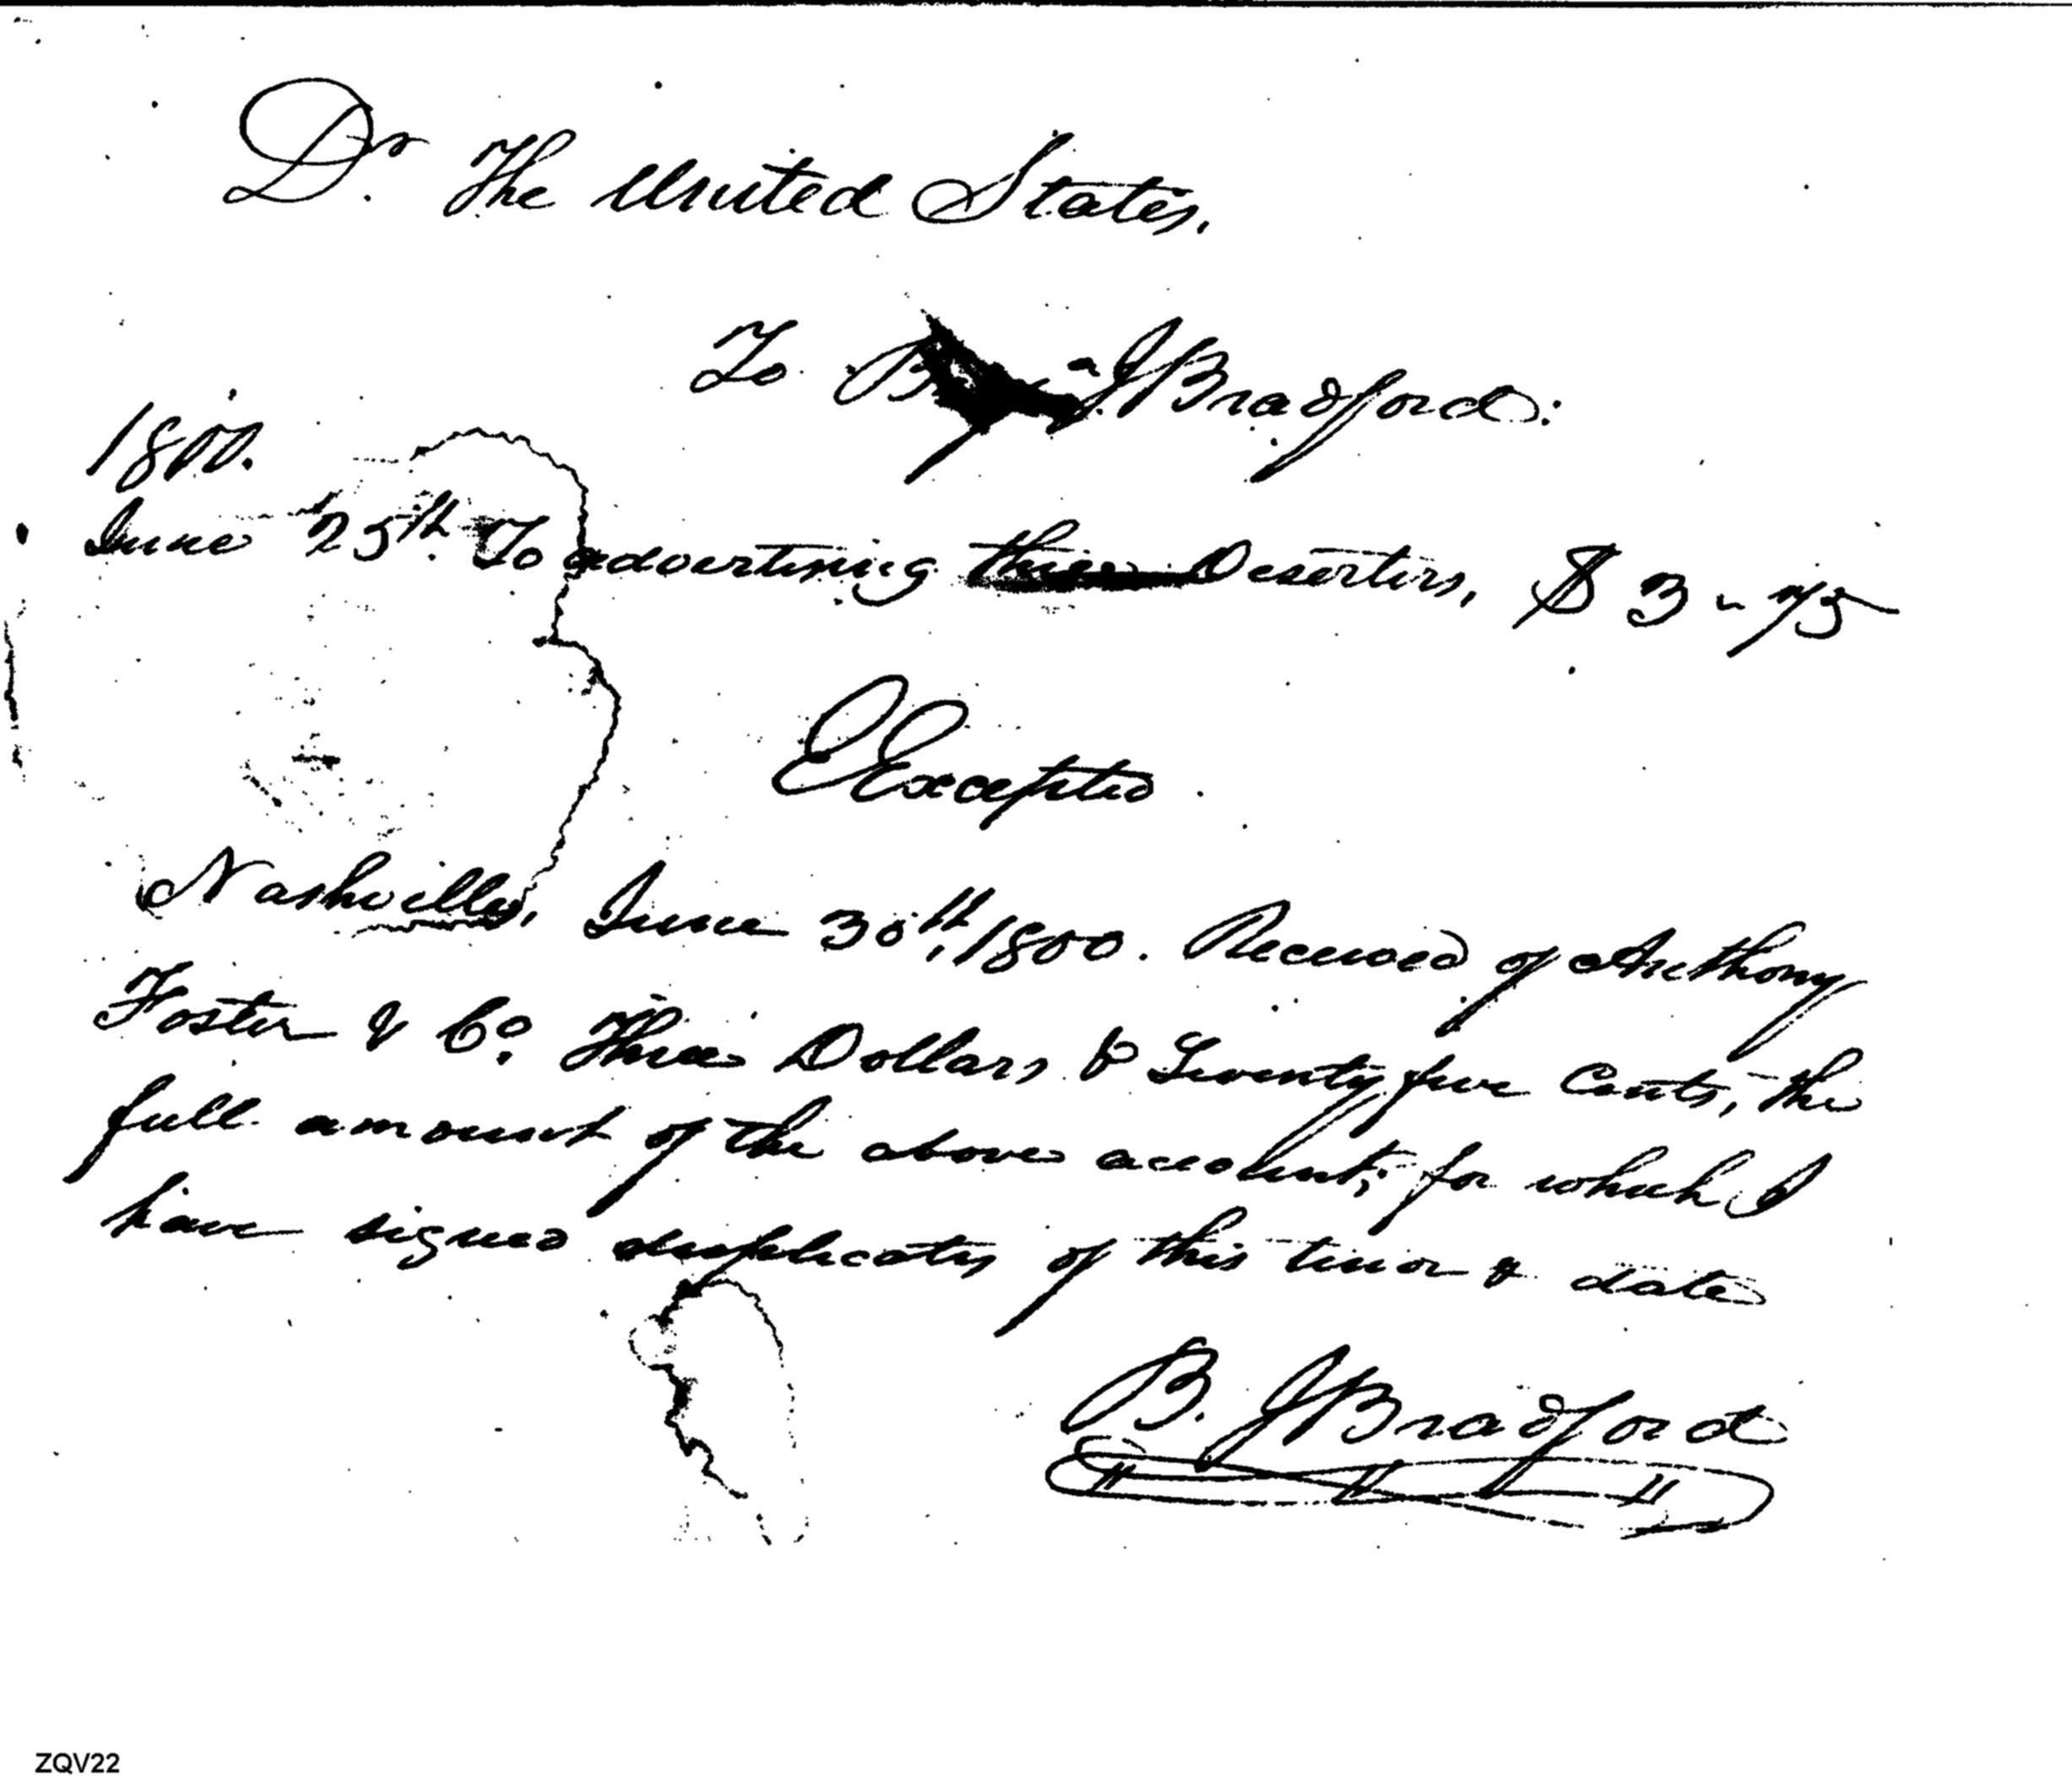 Dr. The United States,
To B J Bradford:
1800.
June 25th To advertising three Deserters, $ 3 " 75
Excepted.
Nashville, June 30th, 1800. Received of Anthony
Foster & Co. Three Dollars & Seventy five Cents, the
full amount of the above account; for which I
have signed duplicates of this tenor & date
B. J Bradford
ZQV22